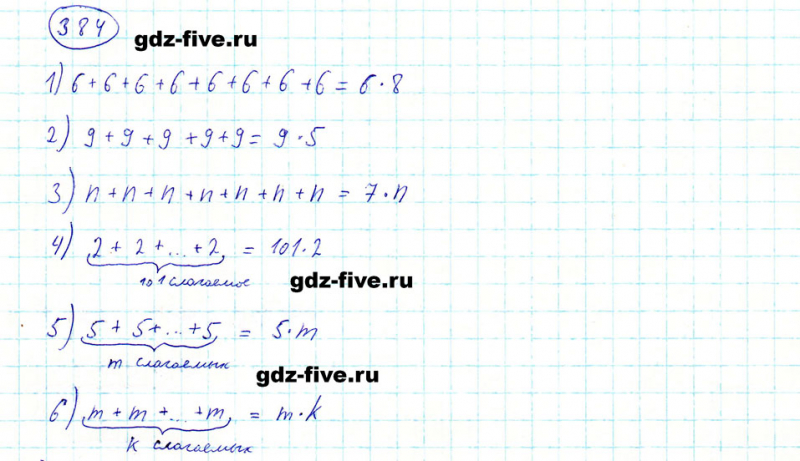 384
gdz-five.ru
1) 6+6+6+6+6+6+6+6 = 6·8
2) 9+9+9+9+9 = 9·5
3) n+n+n+n+n+n+n = 7·n
4) 2+2+...+2 = 101·2
101 слагаемое
gdz-five.ru
5) 5+5+...+5 = 5·m
m слагаемых
gdz-five.ru
6) m+m+...+m = m·k
k слагаемых